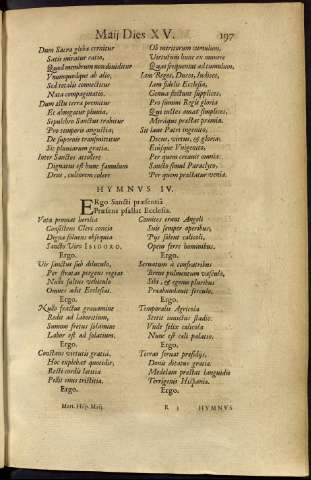 Maij Dies XV. 197
Dum Sacra gleba cernitur
Satis miratur ratio,
Quod membrum non dividitur
Unumquodque ab alio,
Sed totalis connectitur
Nata compaginatio.
Dum æstu terra premitur
Et abnegatur pluvia,
Sepulchro Sanctus traditur
Pro temporis angustia;
De supernis transmittitur
Sic pluviarum gratia.
Inter Sanctos accolere
Dignatus est hunc famulum
Deus, cultorem colere
Ob meritorum cumulum,
Virtutum hunc ex munere
Quos frequentat ad tumulum.
Iam Reges, Duces, Iudices,
Iam fidelis Ecclesia,
Cuncti flectunt supplices,
Pro summi Regis gloria
Qui tales amat simplices,
Miraque præstat præmia.
Sit laus Patri ingenito,
Decus, virtus, & gloria;
Eiusque Unigenito,
Per quem creantur omnia:
Sancto simul Paraclyto,
Per quem præstatur venia.
HYMNVS IV.
ERgo Sancti præsentiâ
Præsens psallat Ecclesia.
Vota promat
Consistens Cleri concio
Digna psallens obsequia
Sancto Viro ISIDORO.
Ergo.
Vir sanctus sub diluculo,
Per stratas pergens regias
Nudo saltus vehiculo
Omnes adit Ecclesias.
Ergo.
Nullo fractus gravamine
Redit ad laboritium,
Summo fretus solamine
Labor est ad solatium.
Ergo.
Constans virtutis gratiâ,
Hoc explebat quotidie,
Recte cordis lætitia
Pellit omes tristitia.
Ergo.
Comites erant Angeli
Suis semper operibus,
Pijs solent calicoli,
Opem ferre hominibus.
Ergo.
Servatum à confratribus
Brevi pulmentum vasculo,
Sibi, & egenis pluribus
Præabundavit ferculo.
Ergo.
Temporalis Agricola
Stetit innoctus stadio:
Unde felix cælicola
Nunc est cæli palatio.
Ergo.
Terram fovuit præsolijs,
Donis dotans gratia.
Medelam præstat languidis
Terrigenis Hispania.
Ergo.
Mart. Hisp. Maij. R 3 HYMNVS